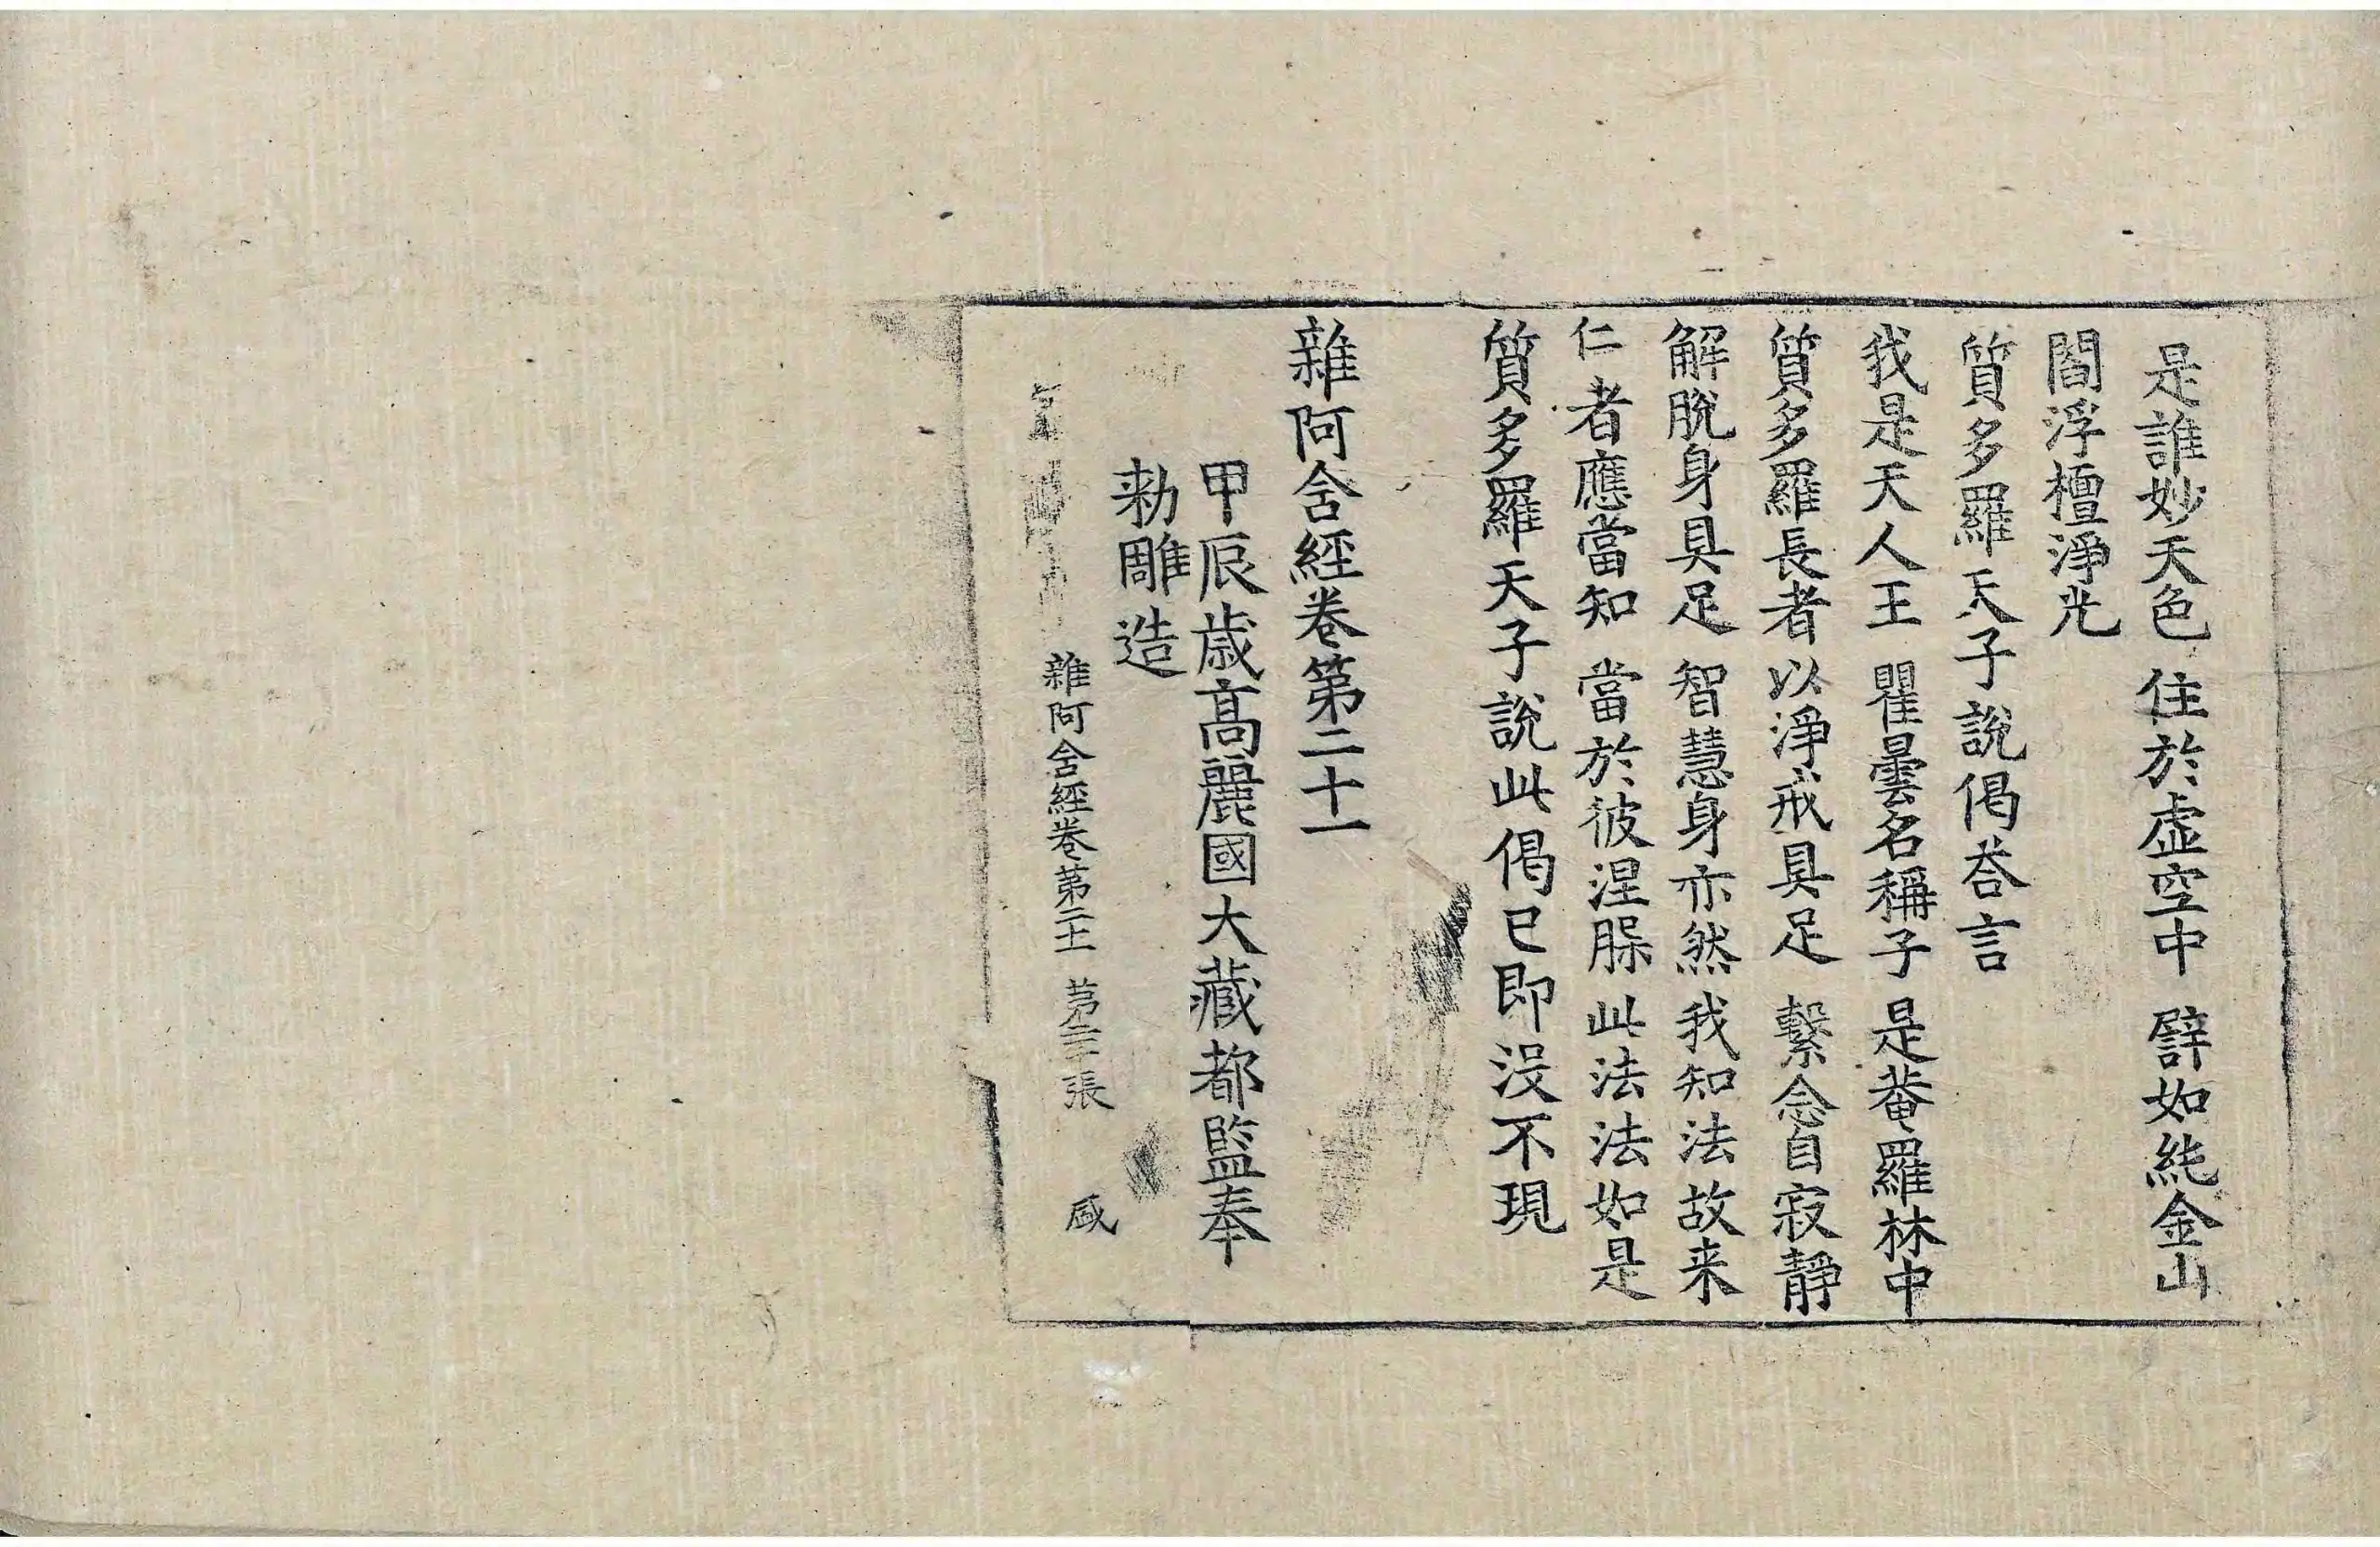 是誰妙天色 住於虛空中 譬如純金山
閻浮檀淨光
質多羅天子說偈荅言
我是天人王 瞿曇名稱子 是菴羅林中
質多羅長者 以淨戒具足 繫念自寂靜
解脫身具足 智慧身亦然 我知法故来
仁者應當知 當於彼涅槃 此法法如是
質多羅天子說此偈已即沒不現
雜阿含經卷第二十一
甲辰歲高麗國大藏都監奉
勑雕造
雜阿含經卷第二十一 第二十張 盛